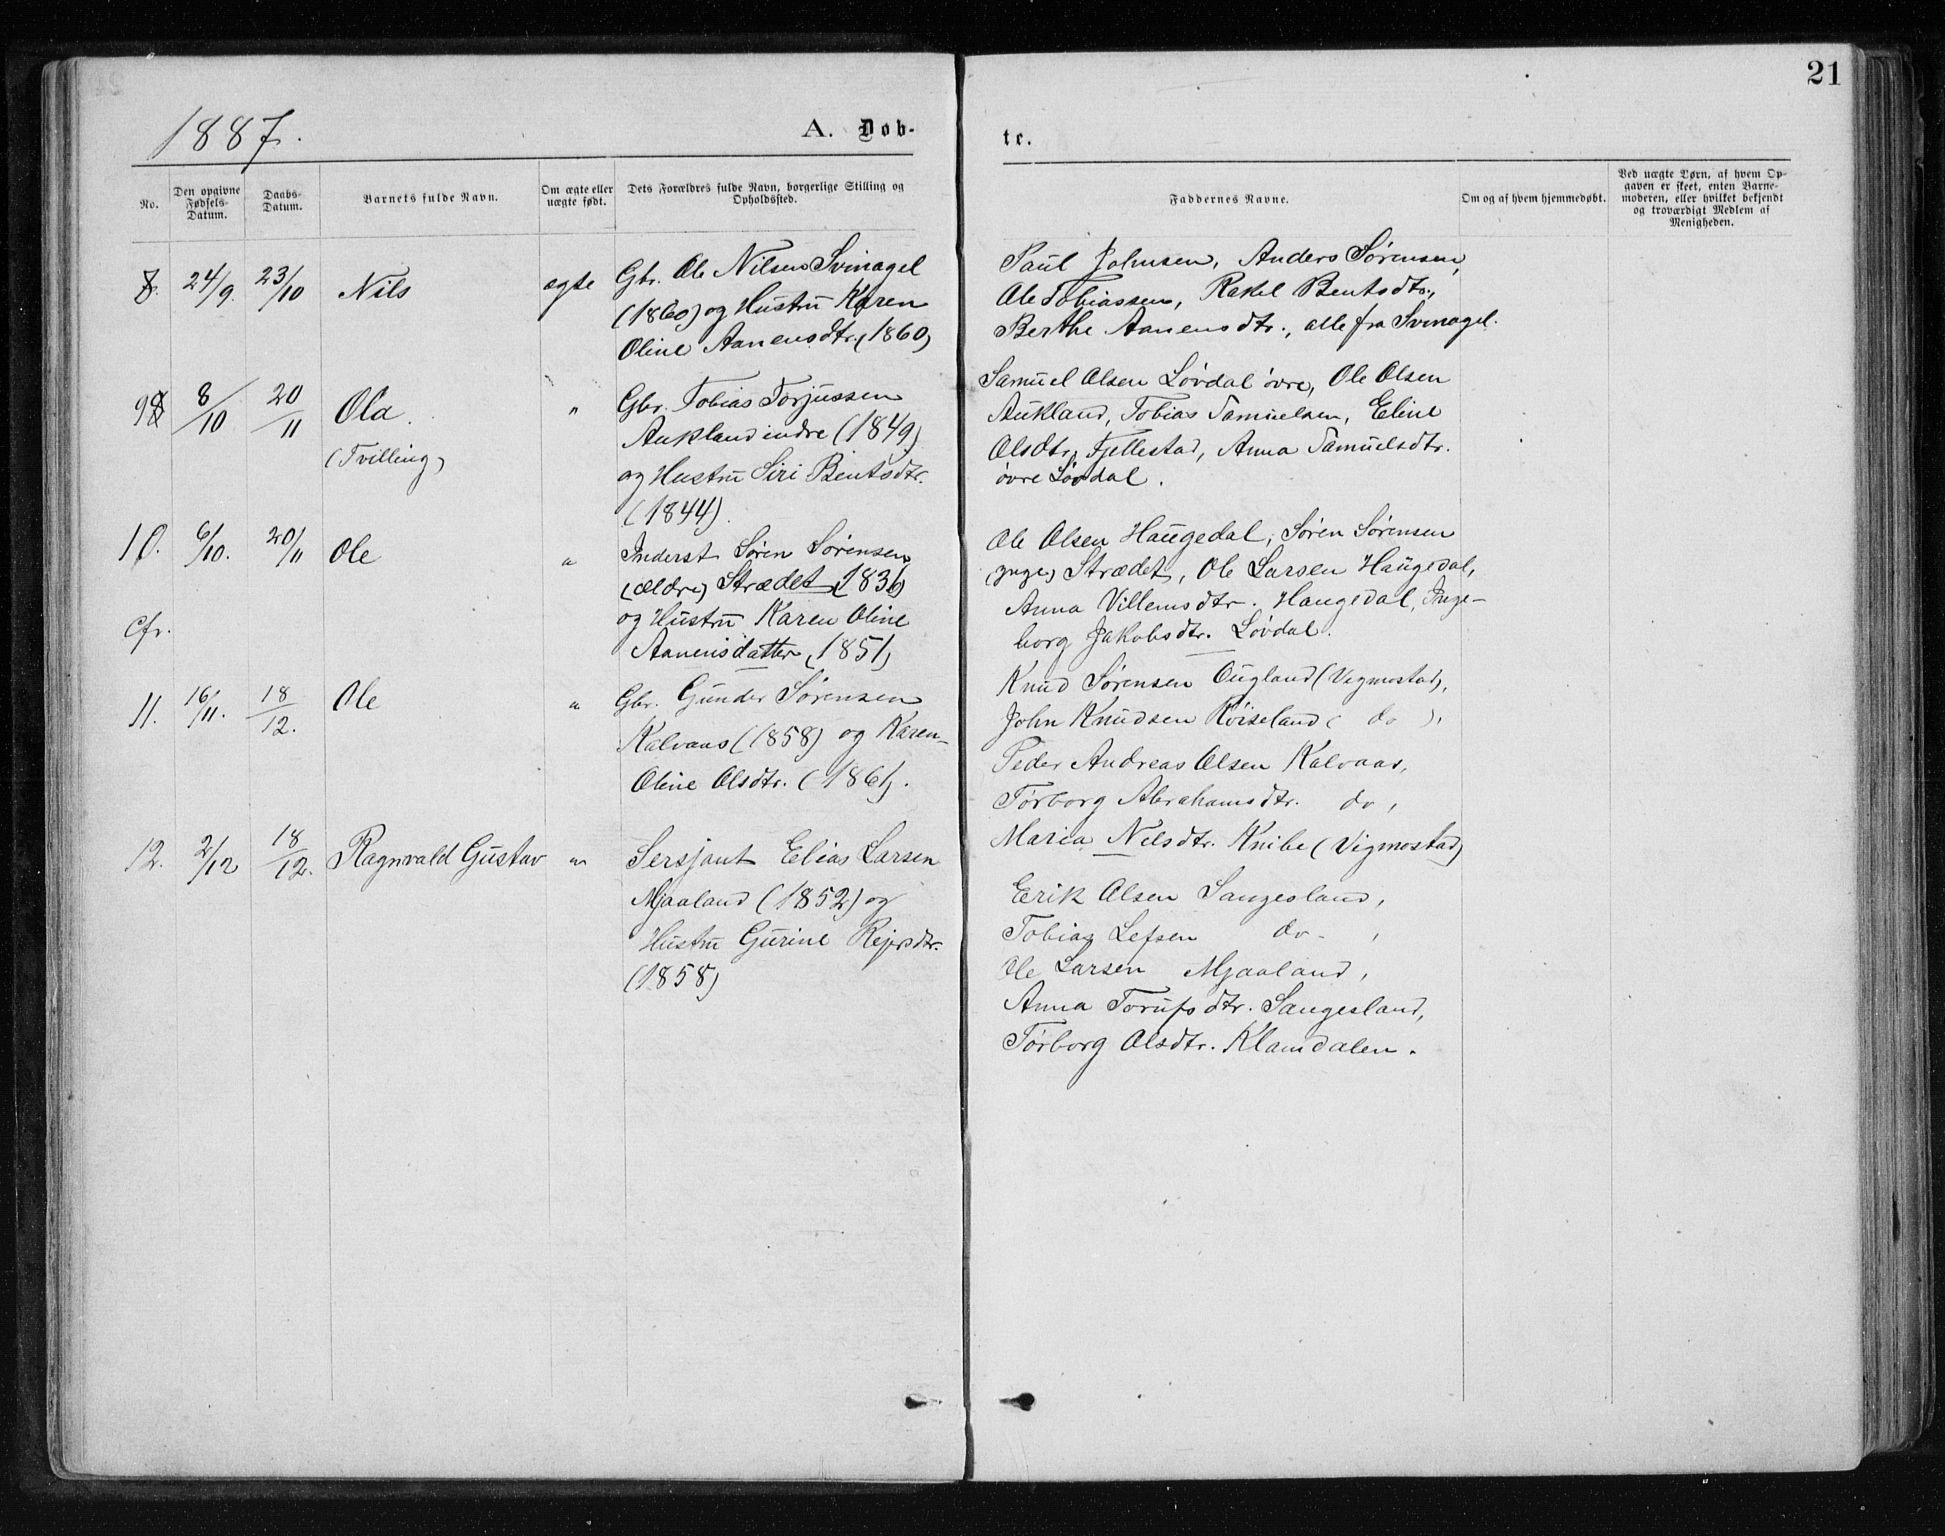 21
1887.
A. Døb-
te.
No.
Den opgivne Fødsels-Datum.
Daabs-Datum.
Barnets fulde Navn.
Om ægte eller uægte født.
Dets Forældres fulde Navn, borgerlige Stilling og Opholdssted.
Faddernes Navne.
Om og af hvem hjemmedøbt.
Ved uægte Børn, af hvem Op-
gaven er skeet, enten Barne-
moderen, eller hvilket bekjendt
og troværdigt Medlem af
Menigheden.
8. 24/9. 23/10 Nils ægte Gbr. Ole Nilsen Svinagel
(1860) og Hustru Karen
Oline Aanensdtr. (1860)
Paul Johnsen, Anders Sørensen,
Ole Tobiassen, Rakel Bentsdtr.,
Berthe Aanensdtr., alle fra Svinagel.
9 8/10 20/11 Ola.
(Tvilling)
" Gbr. Tobias Torjussen
Aukland indre (1849)
og Hustru Siri Bentsdtr.
(1844).
Samuel Olsen Løvdal øvre, Ole Olsen
Aukland, Tobias Samuelsen, Eline
Olsdtr. Fjellestad, Anna Samuelsdtr.
øvre Løvdal.
10. 6/10. 20/11 Ole " Inderst Søren Sørensen
(ældre) Strædet (1836)
og Hustru Karen Oline
Aanensdatter (1851)
Cfr.
Ole Olsen Haugedal, Søren Sørensen
(yngre) Strædet, Ole Larsen Haugedal,
Anna Villemsdtr. Haugedal, Inge-
borg Jakobsdtr. Løvdal.
11. 16/11. 18/12. Ole " Gbr. Gunder Sørensen
Kalvaas (1858) og Karen-
Oline Olsdtr. (1861).
Knud Sørensen Ougland (Vigmostad),
John Knudsen Røiseland ( do ),
Peder Andreas Olsen Kalvaas,
Tørborg Abrahamsdtr. do,
Maria Nilsdtr. Knibe (Vigmostad)
12. 2/12 18/12. Ragnvald Gustav " Sersjant Elias Larsen
Mjaaland (1852) og
Hustru Gurine Rejersdtr.
(1858)
Erik Olsen Sangesland,
Tobias Lefsen do,
Ole Larsen Mjaaland,
Anna Torufsdtr. Sangesland,
Tørborg Olsdtr. Klamdalen.